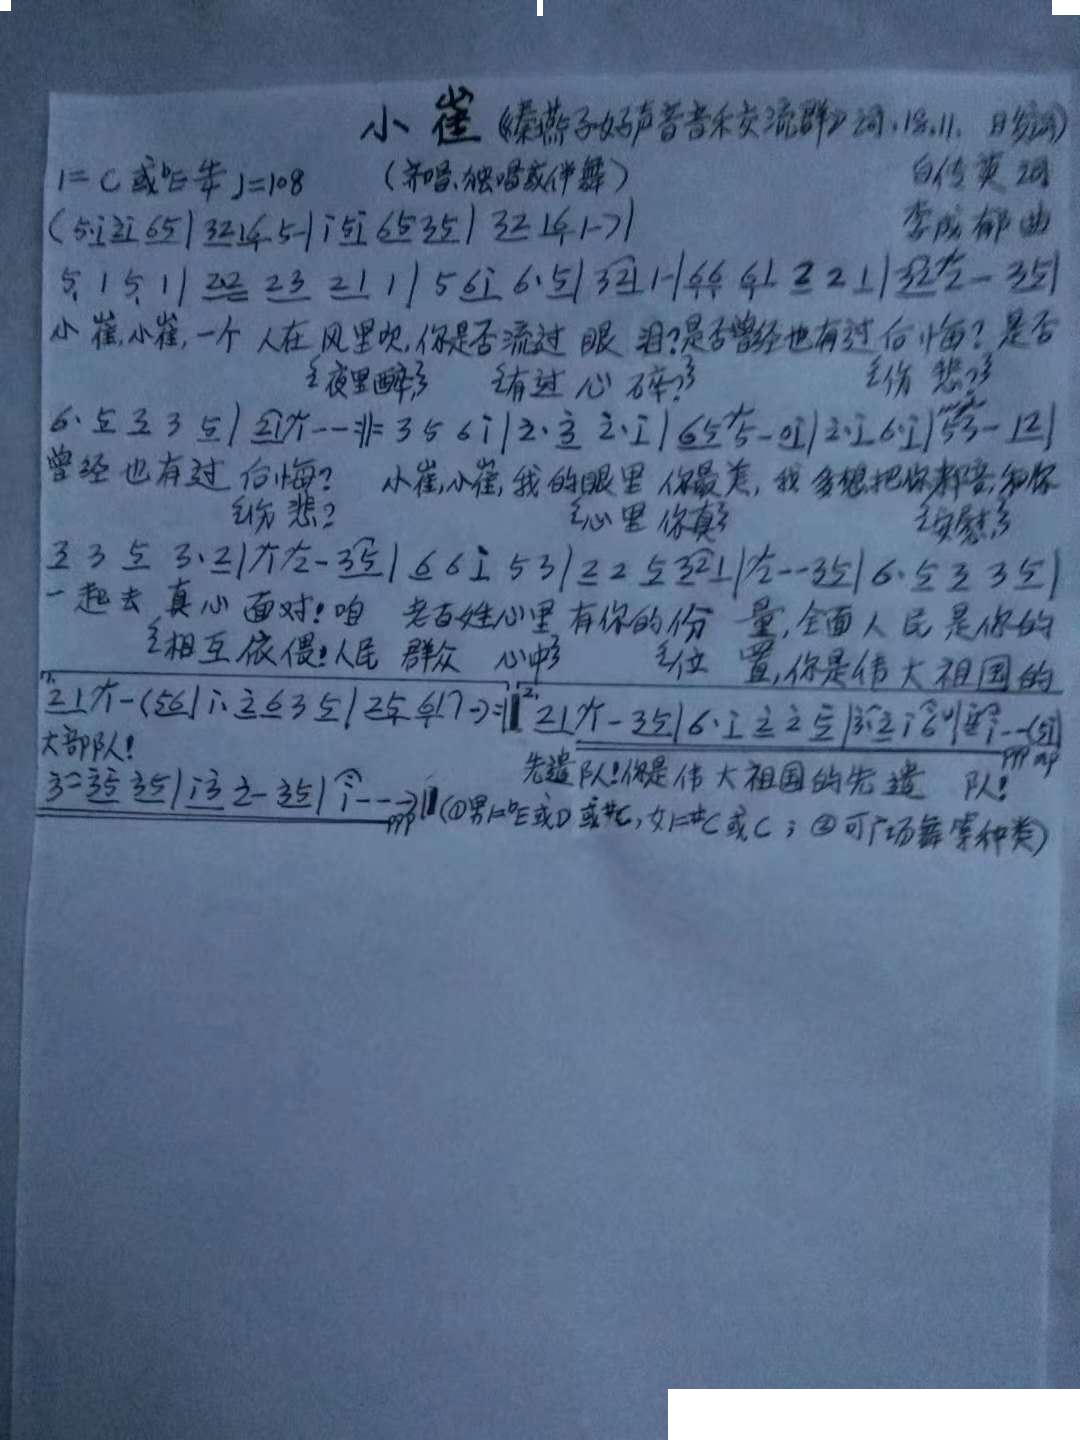 小崔《秦燕子好声音音乐交流群》词.18.11. 日
1=C或bE 4/4 J=108 (齐唱、独唱或伴舞) 白传英 词
(5·i 2i 65|3216 5-|i 5i 65 35|32 16 1-)| 李成郁 曲
5 1 5 1|22 23 21 1|5 6i 6·5|321 1-|66 61 2 2 1|32 2-35|
小崔,小崔,一个人在风里吹,你是否流过眼泪?是否曾经也有过后悔?是否
{夜里醉,} {有过心碎?} {伤悲?}
6·5 3 3 5|21 1--:‖:3 5 6 i|2·3 2·i|65 5-0i|2·i 6·i|53-12|
曾经也有过后悔? 小崔,小崔,我的眼里你最美,我多想把你陪,和你
{伤悲? {心里你真} {安慰,}
3 3 5 3·2|1 2-35|6 6 i 5 3|2 2 5 321|2--35|6·5 3 3 5|
一起去真心面对!咱老百姓心里有你的份量,全面人民是你的
{相互依偎!人民群众心中} {位置,你是伟大祖国的
1. 21 1-(56|i·2 6 3 5|25 61 7-):‖ 2. 21 1-35|6·i 2 2 5|
大部队!
先遣队!你是伟大祖国的先遣队!
3=35 35|i3 2-35|i---)‖(①男1=bE或D或#C,女1=#C或C;②可广场舞等种类)
ppp